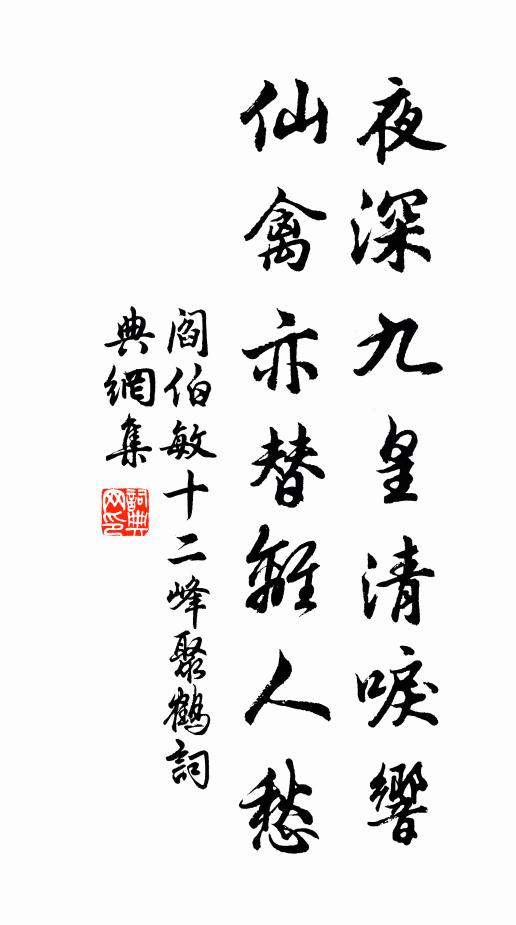 夜深九皇清唳響
仙禽亦替離人愁
閻伯敏十二峰聚鶴詞
典網集
詞典
网印